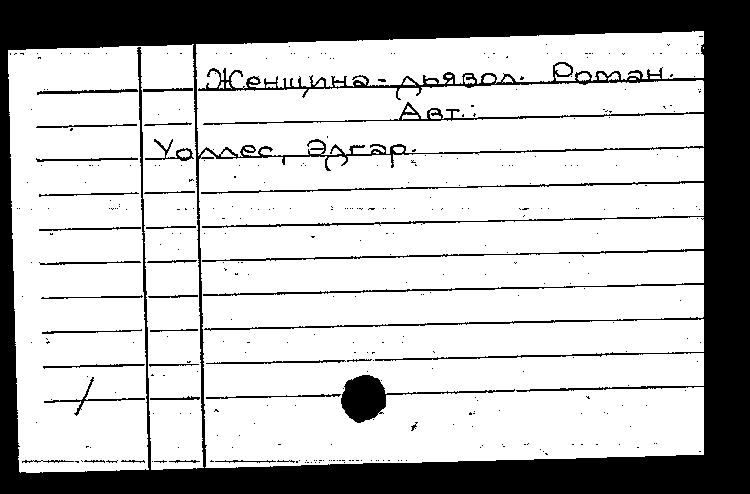 Женщина-дьявол. Роман.
Авт.:
Уоллес, Эдгар.